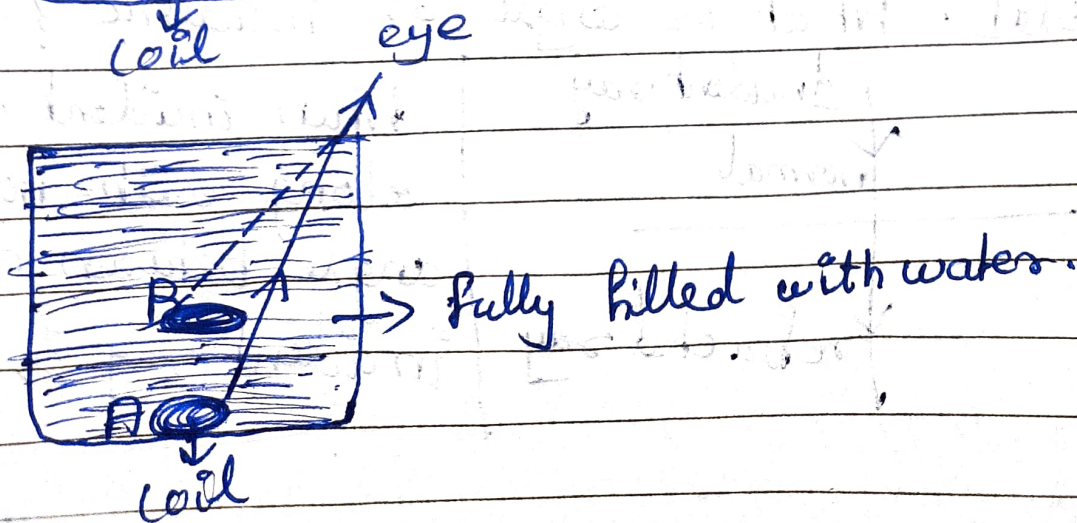 coil
eye
B
fully filled with water.
A
coil